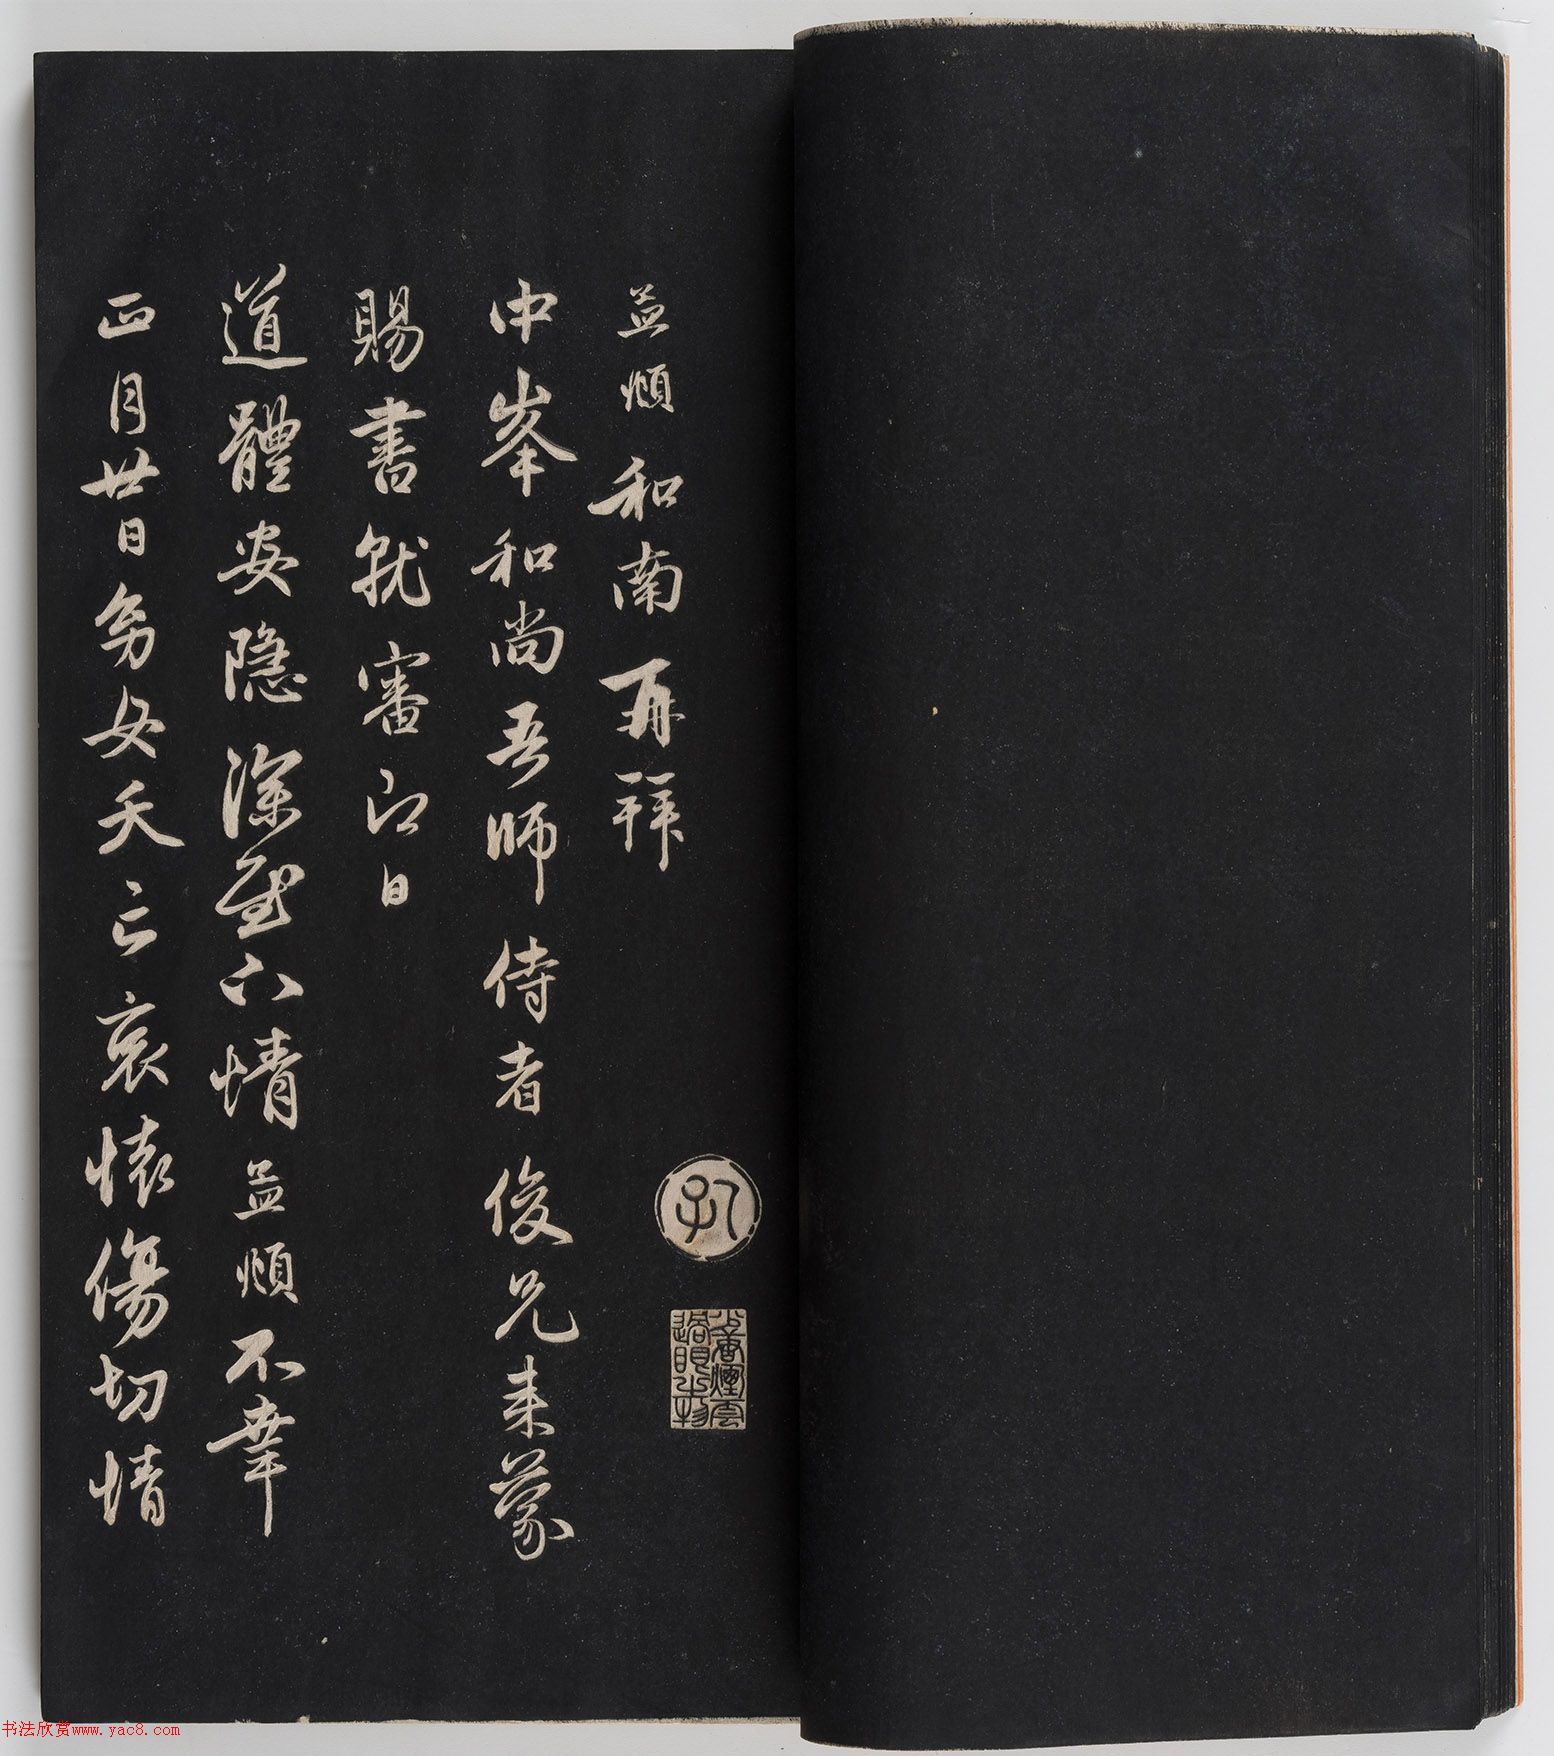 孟頫和南再拜
中峯和尚吾師侍者俊兄来蒙
賜書就審即日
道體安隐深慰下情孟頫不幸
正月廿日幼女夭亡哀懐傷切情
孔
曾
煙雲
過眼
书法欣赏www.yac8.com